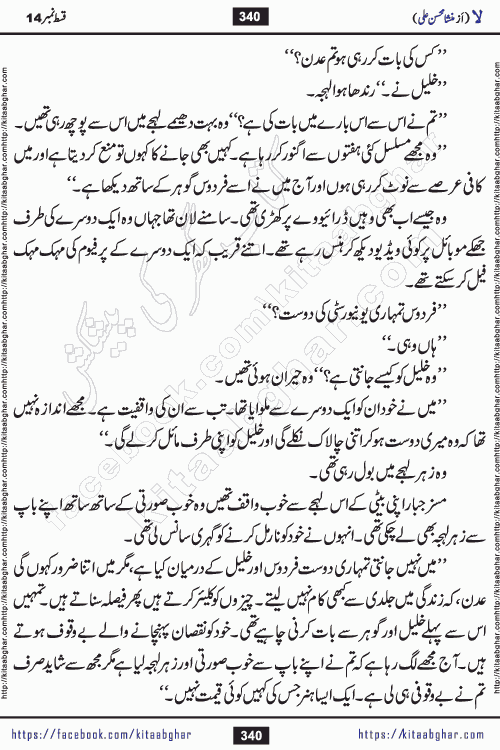 لا (از منشا محسن علی) 340 قسط نمبر 14
’’کس کی بات کر رہی ہو تم عدن؟‘‘
’’خلیل نے۔‘‘ رندھا ہوا لہجہ۔
’’تم نے اس سے اس بارے میں بات کی ہے؟‘‘ وہ بہت دھیمے لہجے میں اس سے پوچھ رہی تھیں۔
’’وہ مجھے مسلسل کئی ہفتوں سے اگنور کر رہا ہے۔ کہیں بھی جانے کا کہوں تو منع کر دیتا ہے اور میں
کافی عرصے سے نوٹ کر رہی ہوں اور آج میں نے اسے فردوس گوہر کے ساتھ دیکھا ہے۔‘‘
وہ جیسے اب بھی وہیں ڈرائیو وے پر کھڑی تھی۔ سامنے لان تھا جہاں وہ ایک دوسرے کی طرف
جھکے موبائل پر کوئی ویڈیو دیکھ کر ہنس رہے تھے۔ اتنے قریب کہ ایک دوسرے کے پرفیوم کی مہک مہک
فیل کر سکتے تھے۔
’’فردوس تمہاری یونیورسٹی کی دوست؟‘‘
’’ہاں وہی۔‘‘
’’وہ خلیل کو کیسے جانتی ہے؟‘‘ وہ حیران ہوئی تھیں۔
’’میں نے خود ان کو ایک دوسرے سے ملوایا تھا۔ تب سے ان کی واقفیت ہے۔ مجھے اندازہ نہیں
تھا کہ وہ میری دوست ہو کر اتنی چالاک نکلے گی اور خلیل کو اپنی طرف مائل کر لے گی۔‘‘
وہ زہر لہجے میں بول رہی تھی۔
مسز جبار اپنی بیٹی کے اس لہجے سے خوب واقف تھیں وہ خوب صورتی کے ساتھ ساتھ اپنے باپ
سے زہر لہجہ بھی لے چکی تھی۔ انہوں نے خود کو نارمل کرنے کو گہری سانس لی تھی۔
’’میں نہیں جانتی تمہاری دوست فردوس اور خلیل کے درمیان کیا ہے، مگر میں اتنا ضرور کہوں گی
عدن، کہ زندگی میں جلدی سے کبھی کام نہیں لیتے۔ چیزوں کو کلیئر کرتے ہیں پھر فیصلہ سناتے ہیں۔ تمہیں
اس سے پہلے خلیل اور گوہر سے بات کرنی چاہیے تھی۔ خود کو نقصان پہنچانے والے بے وقوف ہوتے
ہیں۔ آج مجھے لگ رہا ہے کہ تم نے اپنے باپ سے خوب صورتی اور زہر لہجہ لیا ہے مگر مجھ سے شاید صرف
تم نے بے وقوفی ہی لی ہے۔ ایک ایسا ہنر جس کی کہیں کوئی قیمت نہیں۔‘‘
کتاب گھر کی پیشکش
kitaabghar.com
facebook.com/kitaabghar
http://kitaabghar.com
https://facebook.com/kitaabghar 340 https://kitaabghar.com